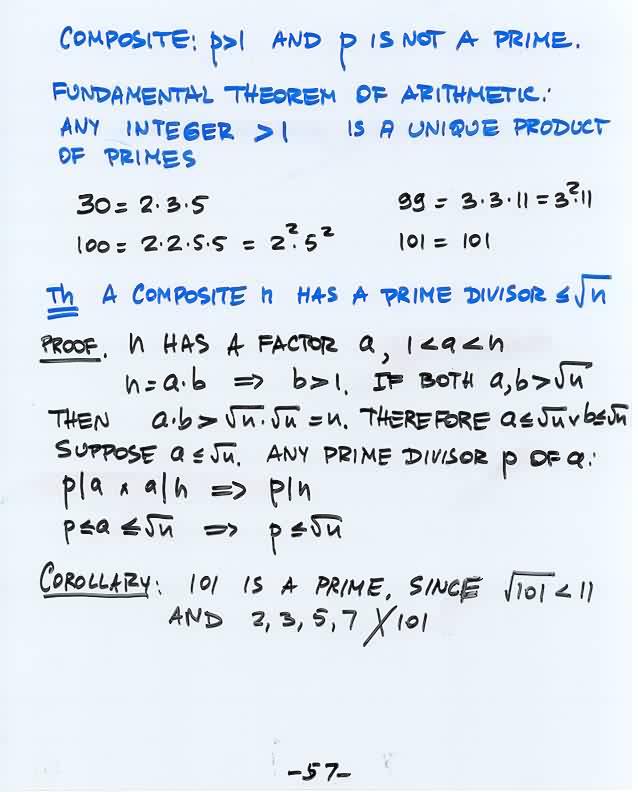 COMPOSITE: p>1 AND p IS NOT A PRIME.
FUNDAMENTAL THEOREM OF ARITHMETIC:
ANY INTEGER >1 IS A UNIQUE PRODUCT
OF PRIMES
30 = 2·3·5 99 = 3·3·11 = 3²·11
100 = 2·2·5·5 = 2²·5² 101 = 101
Th A COMPOSITE n HAS A PRIME DIVISOR ≤ √n
PROOF. n HAS A FACTOR a, 1<a<n
n = a·b ⇒ b>1. IF BOTH a,b > √n
THEN a·b > √n·√n = n. THEREFORE a≤√n ∨ b≤√n
SUPPOSE a ≤ √n. ANY PRIME DIVISOR p OF a:
p|a ∧ a|n ⇒ p|n
p≤a ≤√n ⇒ p≤√n
COROLLARY: 101 IS A PRIME, SINCE √101 < 11
AND 2, 3, 5, 7 ∤ 101
-57-